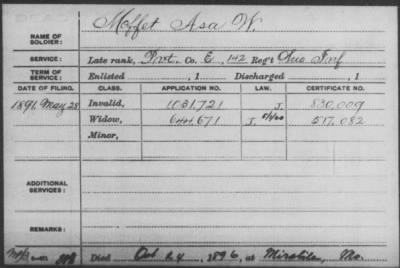 Moffet Asa W.
NAME OF SOLDIER:
SERVICE: Late rank, Pvt. Co. E, 142 Reg't Ohio Inf
TERM OF SERVICE: Enlisted , 1 Discharged , 1
DATE OF FILING. CLASS. APPLICATION NO. LAW. CERTIFICATE NO.
1891 May 28 Invalid, 1031,721 J. 830,009
Widow, 644,671 J. 517,082
Minor,
ADDITIONAL SERVICES:
REMARKS:
Died Oct 24, 1896, at Mirabile, Mo.